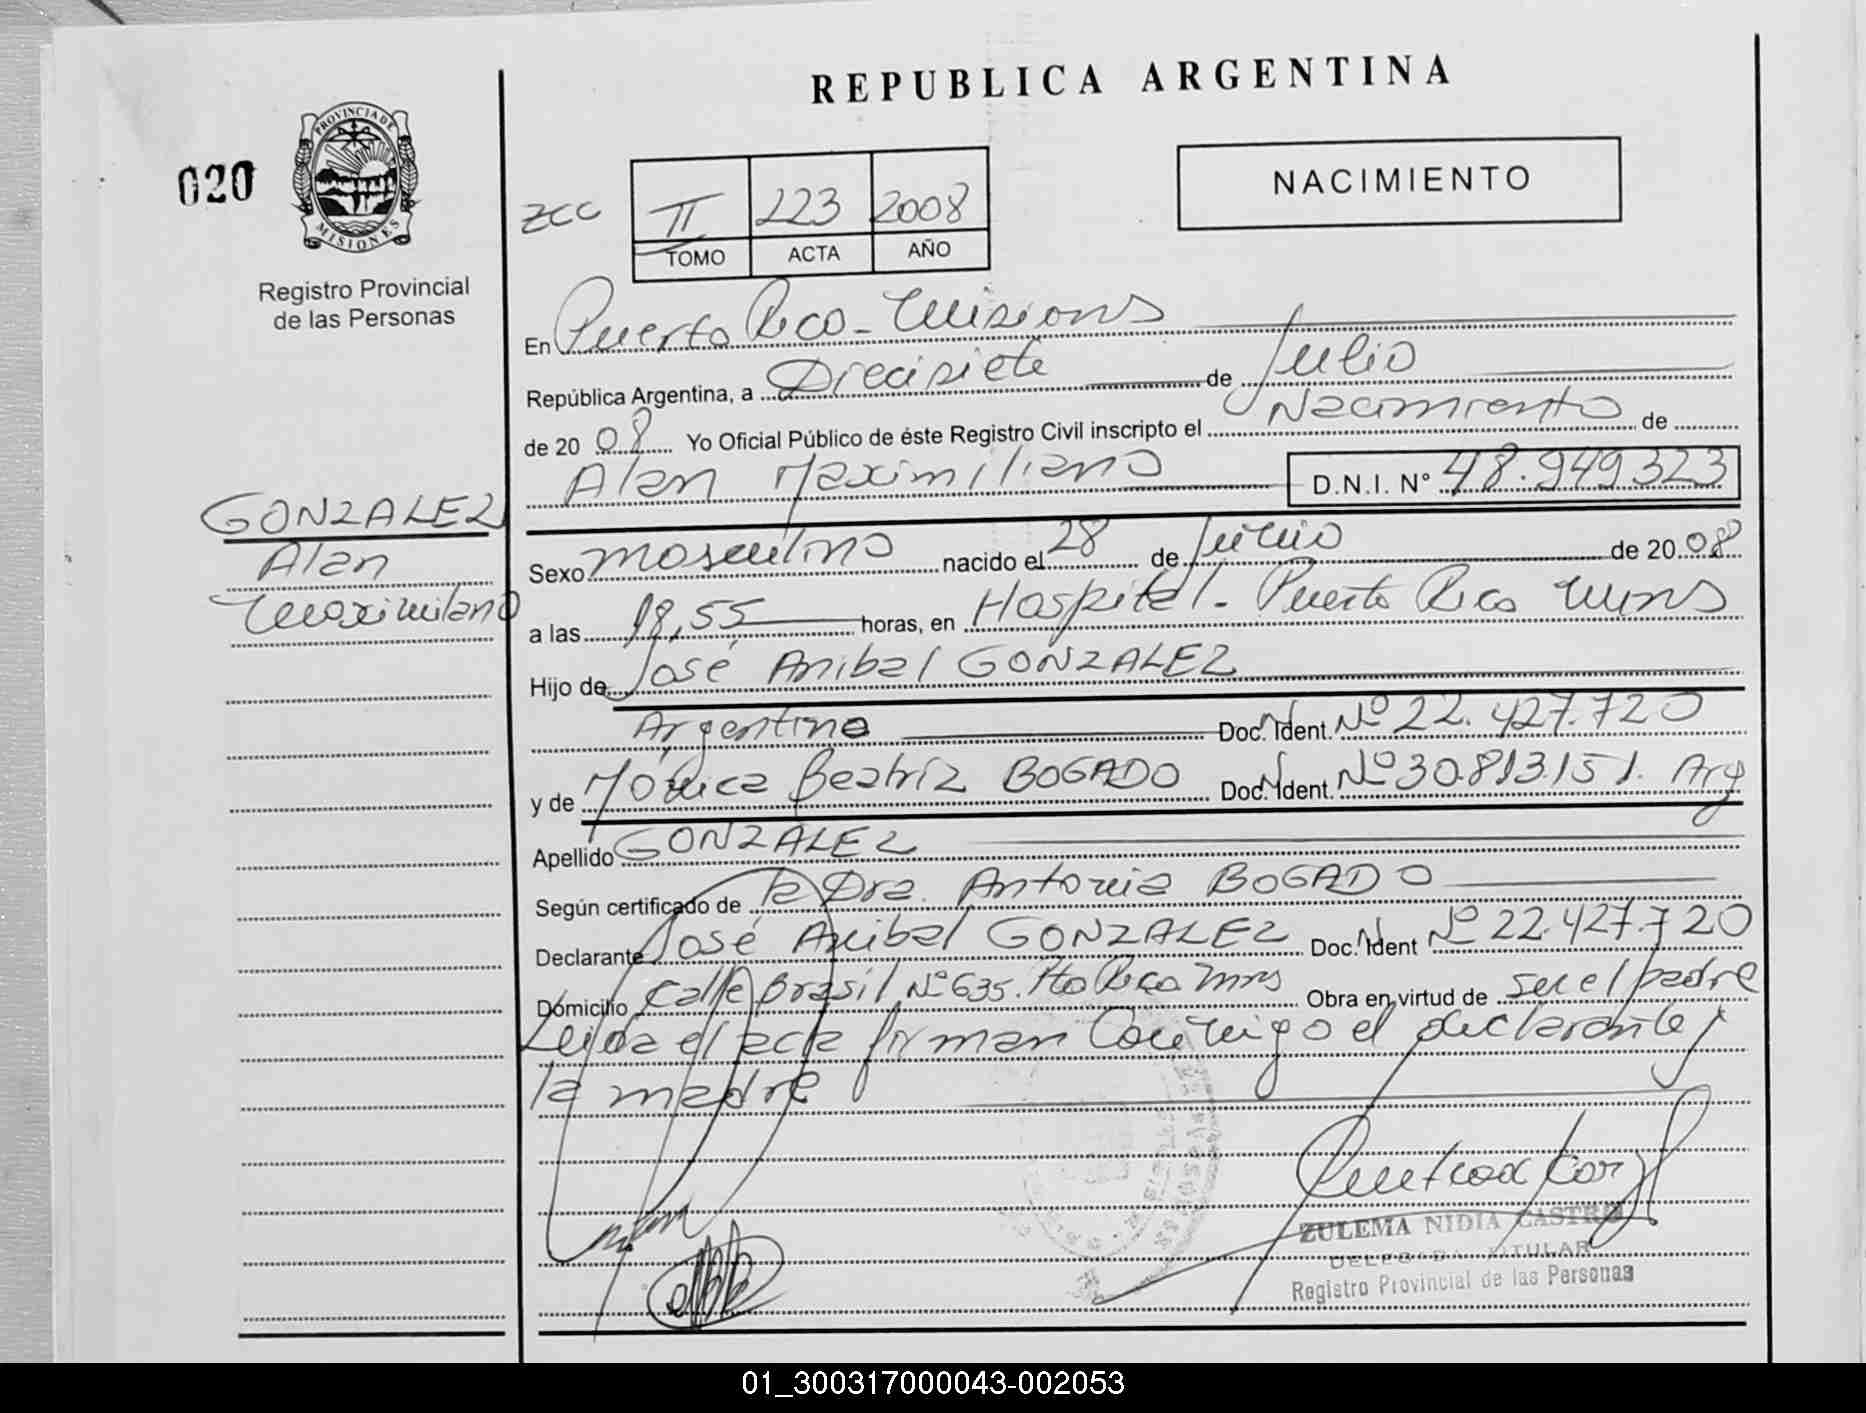 REPUBLICA ARGENTINA
020
PROVINCIA DE
MISIONES
Registro Provincial
de las Personas
NACIMIENTO
ZCC
II 223 2008
TOMO ACTA AÑO
En Puerto Rico - Misiones
República Argentina, a Diecisiete de Julio
de 2008 Yo Oficial Público de éste Registro Civil inscripto el Nacimiento de
Alan Maximiliano D.N.I. N° 48.949.323
GONZALEZ
Alan
Maximilano
Sexo masculino nacido el 28 de Junio de 2008
a las 18,55 horas, en Hospital - Puerto Rico Mnes
Hijo de José Anibal GONZALEZ
Argentino Doc. Ident. N° 22.427.720
y de Mónica Beatriz BOGADO Doc. Ident. N° 30.813.151. Arg
Apellido GONZALEZ
Según certificado de la Dra. Antonia BOGADO
Declarante José Anibal GONZALEZ Doc. Ident N° 22.427.720
Domicilio Calle Brasil N° 635. Pto Rico Mnes Obra en virtud de ser el padre
Leida el acta firman conmigo el declarante y
la madre
ZULEMA NIDIA CASTRO
DELEGADA TITULAR
Registro Provincial de las Personas
01_300317000043-002053